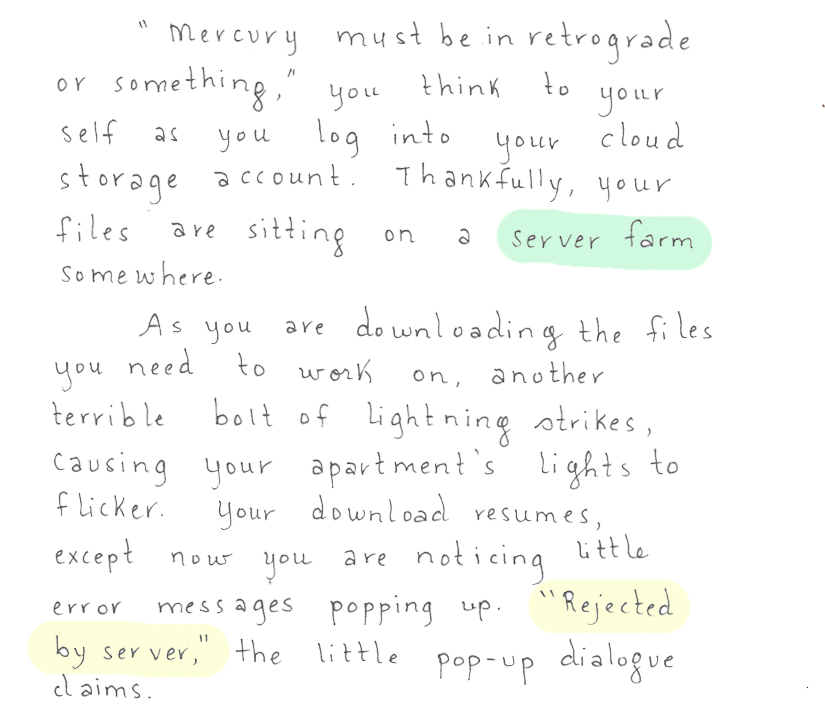 "Mercury must be in retrograde
or something," you think to your
self as you log into your cloud
storage account. Thankfully, your
files are sitting on a server farm
somewhere.
As you are downloading the files
you need to work on, another
terrible bolt of lightning strikes,
causing your apartment's lights to
flicker. Your download resumes,
except now you are noticing little
error messages popping up. "Rejected
by server," the little pop-up dialogue
claims.